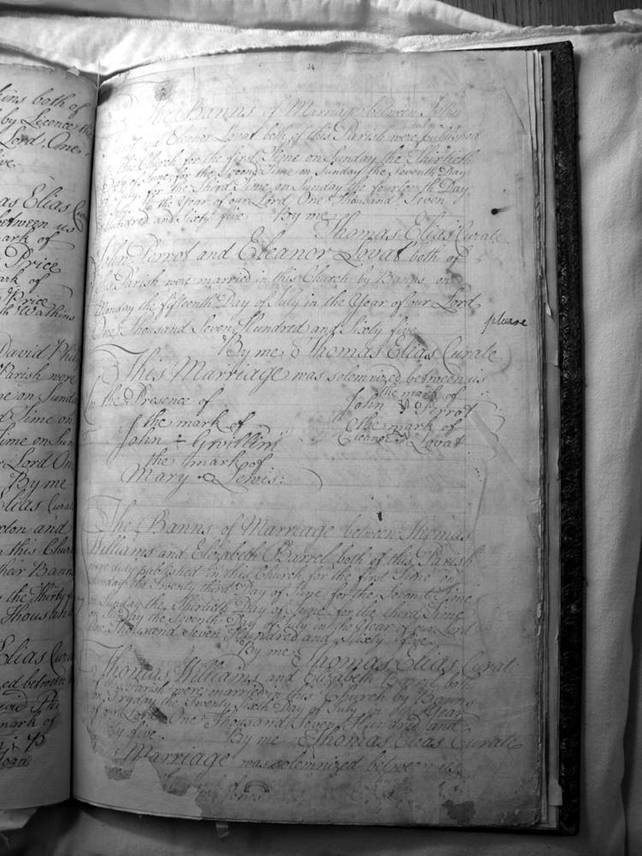 kins both of
by Licence
Lord One
as Elias Cu
between us
mark of
Price
mark of
Price
Watkins
David Phi
Parish were
me on Sunday
Time on
Time on Sun
r Lord On
By me
Elias Cura
and
this Chur
their Bann
the Thirty
Thousan
Elias Cura
ed between
mark of
The Banns of Marriage between John
Eleanor Lovat both of this Parish were published
the Church for the first Time on Sunday the Thirtieth
Day of June, for the Second Time on Sunday the Seventh Day
for the Third Time on Sunday the fourteenth Day
in the Year of our Lord One Thousand Seven
Hundred and Sixty five By me
Thomas Elias Curate
John Perrot and Eleanor Lovat both of
Parish were married in this Church by Banns on
Monday the fifteenth Day of July in the Year of our Lord
One Thousand Seven Hundred and Sixty five
please
By me Thomas Elias Curate
This Marriage was solemnized between us
In the Presence of the mark of
John Perrot
the mark of the mark of
John + Eleanor Lovat
the mark of
Mary Lewis
The Banns of Marriage between Thomas
Williams and Elizabeth Barrel both of this Parish
were duly published in this Church for the first Time on
Sunday the Twenty third Day of June for the Second Time
on Sunday the Thirtieth Day of June for the third Time
on Sunday the Seventh Day of July in the Year of our Lord
One Thousand Seven Hundred and Sixty five
By me Thomas Elias Curat
Thomas Williams and Elizabeth
Parish were married in this Church by Banns
on Fryday the Twenty Sixth Day of July in Year
of our Lord One Thousand Seven Hundred and
Sixty five By me Thomas Elias Curate
Marriage was solemnized between us